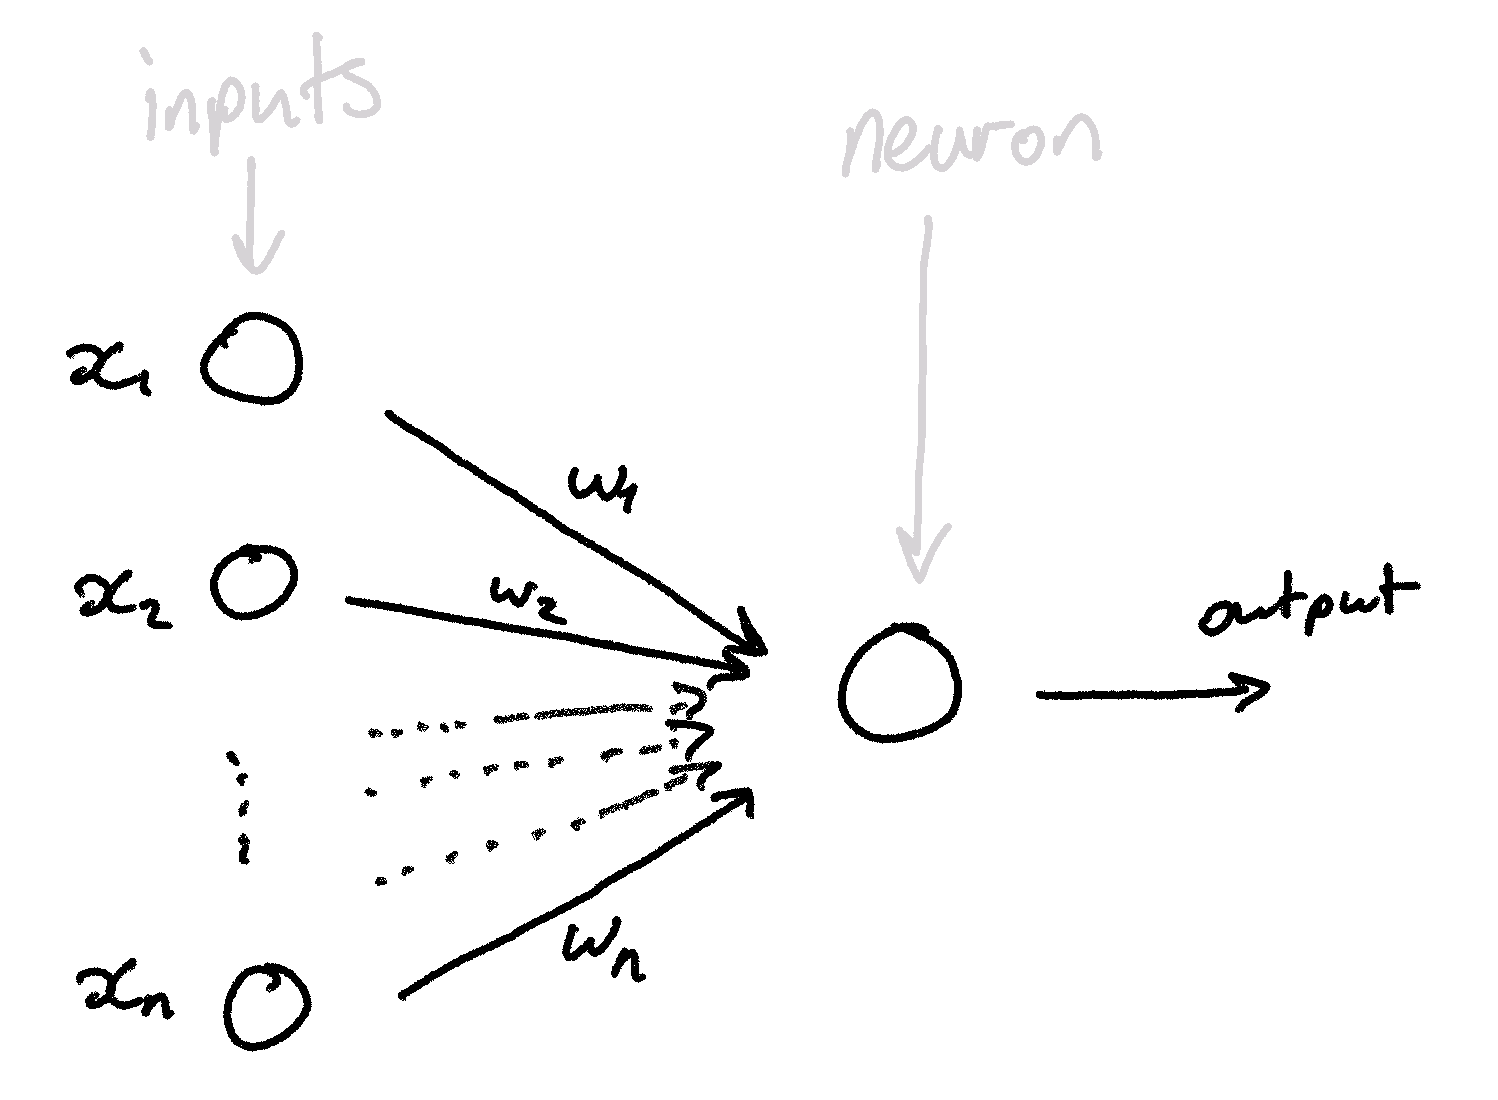 inputs
neuron
x₁
w₁
x₂
w₂
output
xₙ
wₙ